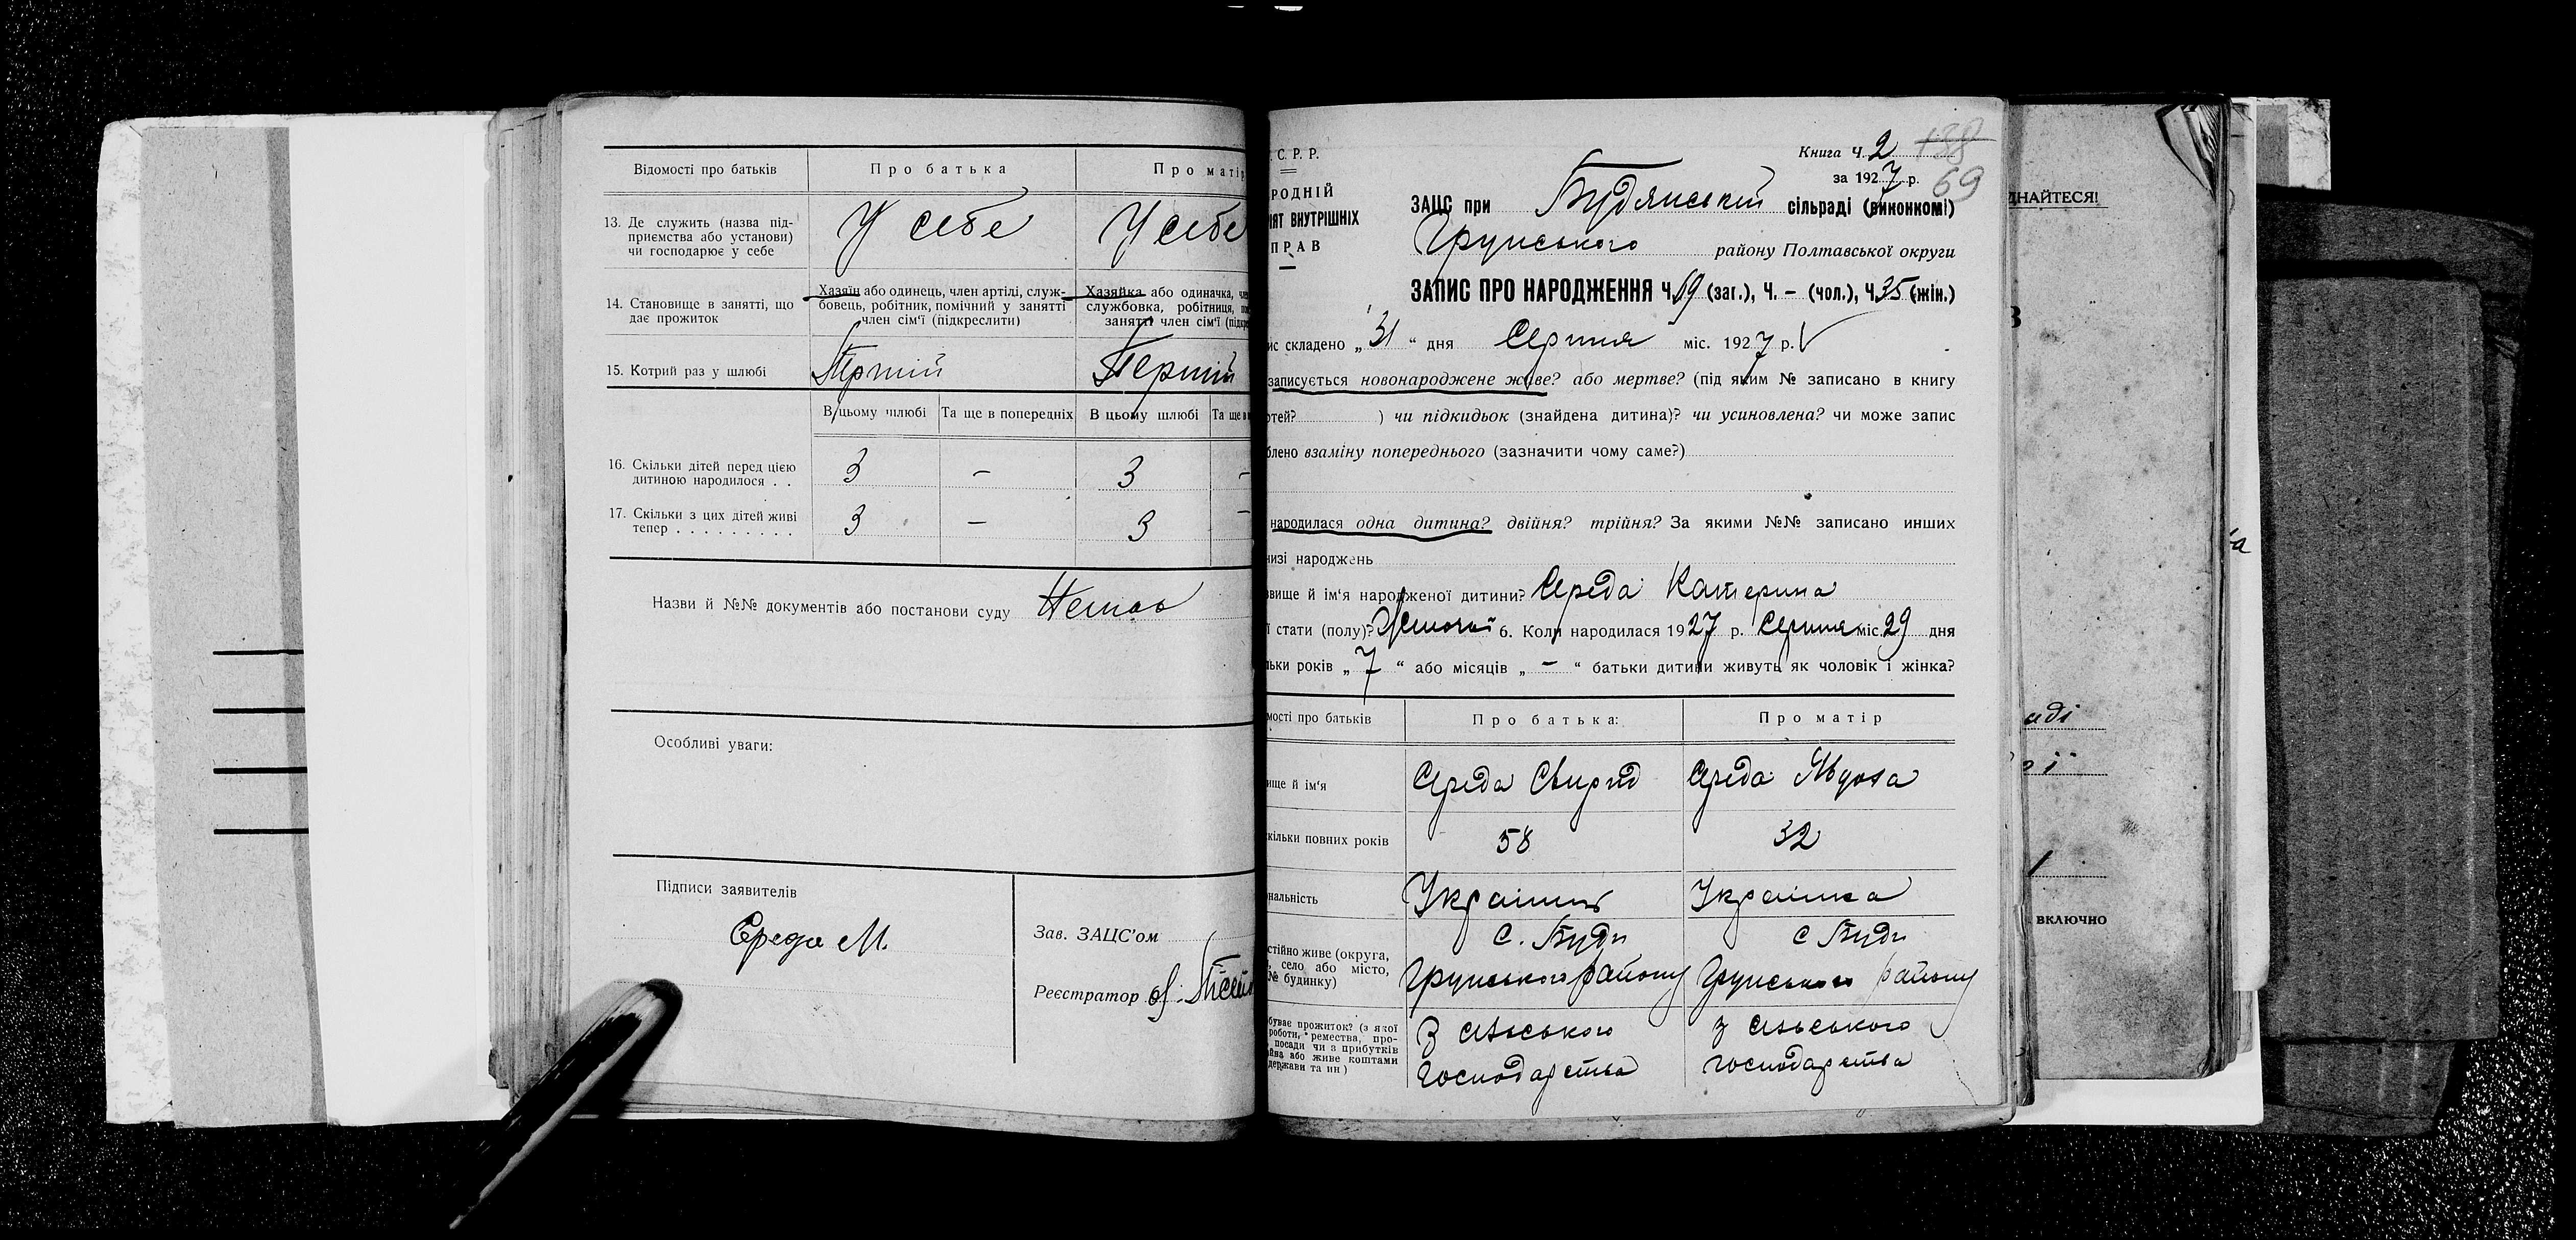 Відомості про батьків
Про батька
Про матір
13. Де служить (назва під-
приємства або установи)
чи господарює у себе
У себе
У себе
14. Становище в занятті, що
дає прожиток
Хазяїн або одинець, член артілі, служ-
бовець, робітник, помічний у занятті
член сім'ї (підкреслити)
Хазяйка або одиначка,
службовка, робітниця,
занятті член сім'ї
15. Котрий раз у шлюбі
Перший
Перший
В цьому шлюбі
Та ще в попередніх
В цьому шлюбі
Та ще в
16. Скільки дітей перед цією
дитиною народилося . .
3 – 3 –
17. Скільки з цих дітей живі
тепер . . . . . . . . .
3 – 3 –
Назви й №№ документів або постанови суду
Особливі уваги:
Підписи заявителів
Середа М.
Зав. ЗАЦС'ом
Реєстратор
С. Р. Р.
РОДНІЙ
ІЯТ ВНУТРІШНІХ
ПРАВ
Книга Ч. 2
138
за 1927 р. 69
ЗАЦС при Будянській сільраді (виконкомі)
Грунського району Полтавської округи
ЗАПИС ПРО НАРОДЖЕННЯ Ч. 69 (заг.), Ч. – (чол.), Ч. 35 (жін.)
ис складено „31“ дня Серпня міс. 1927 р.
записується новонароджене живе? або мертве? (під яким № записано в книгу
ртей? ) чи підкидьок (знайдена дитина)? чи усиновлена? чи може запис
блено взаміну попереднього (зазначити чому саме?)
народилася одна дитина? двійня? трійня? За якими №№ записано инших
низі народжень
звище й ім'я народженої дитини? Середа Катерина
ї стати (полу)? Жіночої 6. Коли народилася 1927 р. Серпня міс. 29 дня
льки років „7“ або місяців „–“ батьки дитини живуть як чоловік і жінка?
мості про батьків
Про батька:
Про матір
ище й ім'я
Середа Свирид
Середа Явдоха
кільки повних років
58
32
нальність
Українець
Українка
стійно живе (округа,
село або місто,
№ будинку)
с. Буди
Грунського району
с Буди
Грунського району
буває прожиток? (з якої
роботи, ремества, про-
посади чи з прибутків
айна або живе коштами
держави та ин)
З сільського
господарства
з сільського
господарства
ДНАЙТЕСЯ!
В
аді
ої
включно